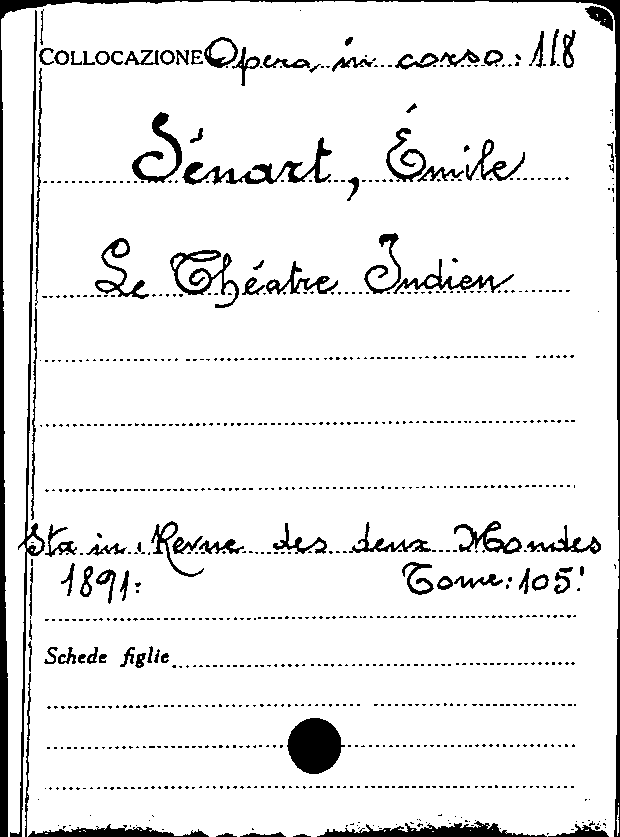 COLLOCAZIONE Opera in corso: 118
Sénart, Émile
Le Théatre Indien
Sta in: Revue des deux Mondes
1891: Tome: 105!
Schede figlie